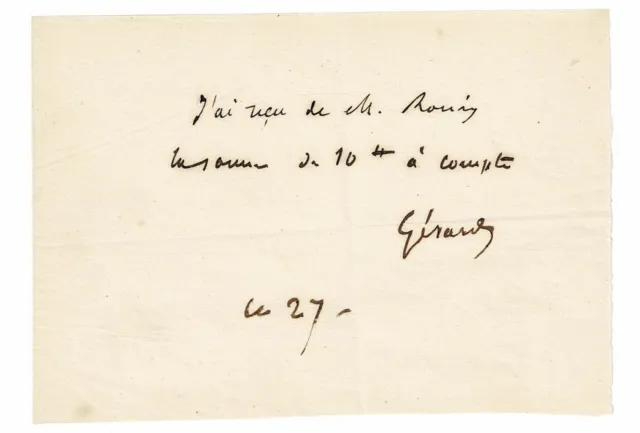 J'ai reçu de M. Rouin
la somme de 10 ₶ à compte
Gérard
ce 27 -